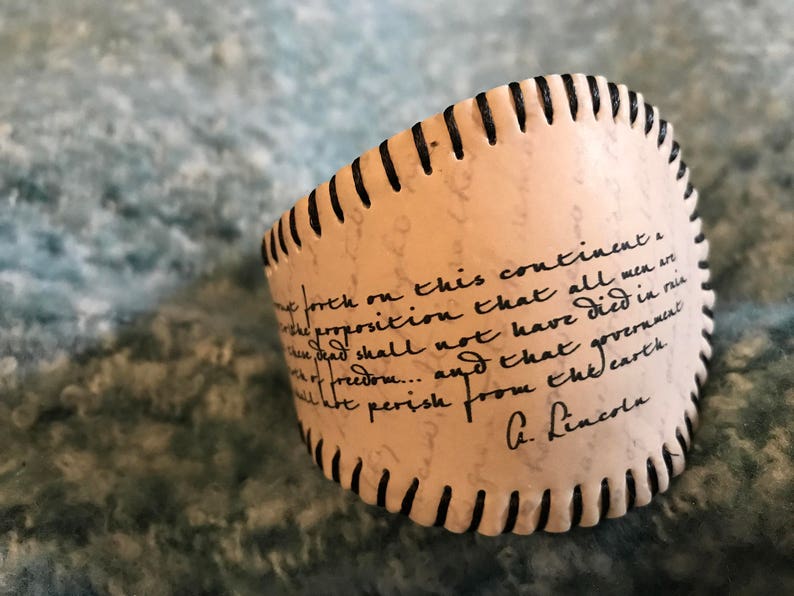 forth on this continent a
the proposition that all men are
these dead shall not have died in vain
of freedom... and that government
shall not perish from the earth.
A. Lincoln